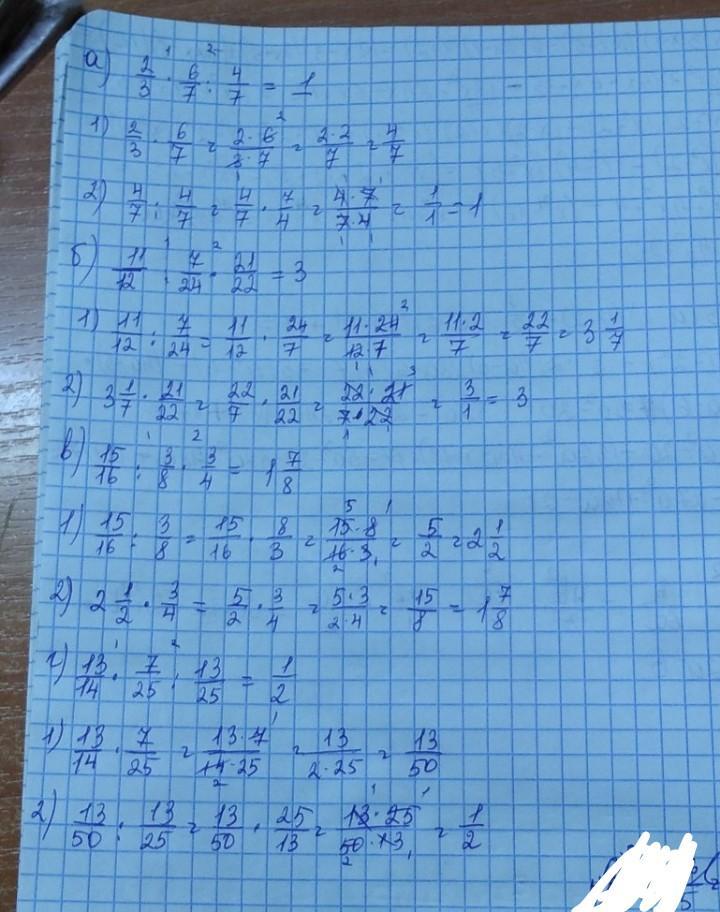 а) 2/3 · 6/7 : 4/7 = 1
1) 2/3 · 6/7 = 2·6/3·7 = 2·2/7 = 4/7
2) 4/7 : 4/7 = 4/7 · 7/4 = 4·7/7·4 = 1/1 = 1
б) 11/12 : 7/24 · 21/22 = 3
1) 11/12 : 7/24 = 11/12 · 24/7 = 11·24/12·7 = 11·2/7 = 22/7 = 3 1/7
2) 3 1/7 · 21/22 = 22/7 · 21/22 = 22·21/7·22 = 3/1 = 3
в) 15/16 : 3/8 · 3/4 = 1 7/8
1) 15/16 : 3/8 = 15/16 · 8/3 = 15·8/16·3 = 5/2 = 2 1/2
2) 2 1/2 · 3/4 = 5/2 · 3/4 = 5·3/2·4 = 15/8 = 1 7/8
г) 13/14 · 7/25 : 13/25 = 1/2
1) 13/14 · 7/25 = 13·7/14·25 = 13/2·25 = 13/50
2) 13/50 : 13/25 = 13/50 · 25/13 = 13·25/50·13 = 1/2